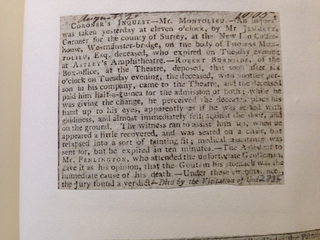 August 20 1805.
CORONER'S INQUEST—MR. MONTOLIEU.—An inquest
was taken yesterday at eleven o'clock, by Mr. JEMMETT,
Coroner for the county of Surrey, at the New Inn Coffee-
house, Westminster-bridge, on the body of THOMAS MON-
TOLIEU, Esq. deceased, who expired on Tuesday evening
at ASTLEY's Amphitheatre.—ROBERT BURNSIDE, of the
Box-office, at the Theatre, deposed, that soon after six
o'clock on Tuesday evening, the deceased, with another per-
son in his company, came to the Theatre, and the deceased
paid him half-a-guinea for the admission of both; while he
was giving the change, he perceived the deceased place his
hand up to his eyes, apparently as if he was seized with
giddiness, and almost immediately fell against the door, and
on the ground. The witness ran to assist him up, when he
appeared a little recovered, and was seated on a chair, but
relapsed into a sort of fainting fit; medical assistance was
sent for, but he expired in ten minutes.—The Assistant to
Mr. who attended the unfortunate Gentleman,
gave it as his opinion, that the Gout in his stomach was the
immediate cause of his death.—Under these circumstances,
the Jury found a verdict—Died by the Visitation of God.